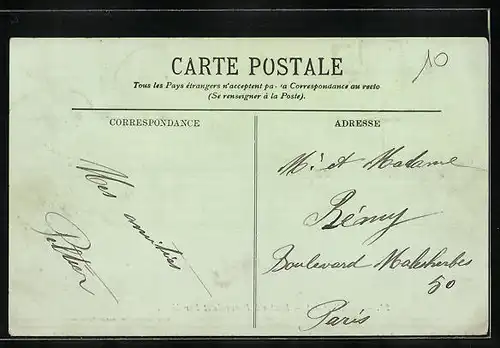 10
CARTE POSTALE
Tous les Pays étrangers n'acceptent pas la Correspondance au recto
(Se renseigner à la Poste).
CORRESPONDANCE
Mes amitiés
ADRESSE
Mr et Madame
Rémy
Boulevard Malesherbes
50
Paris